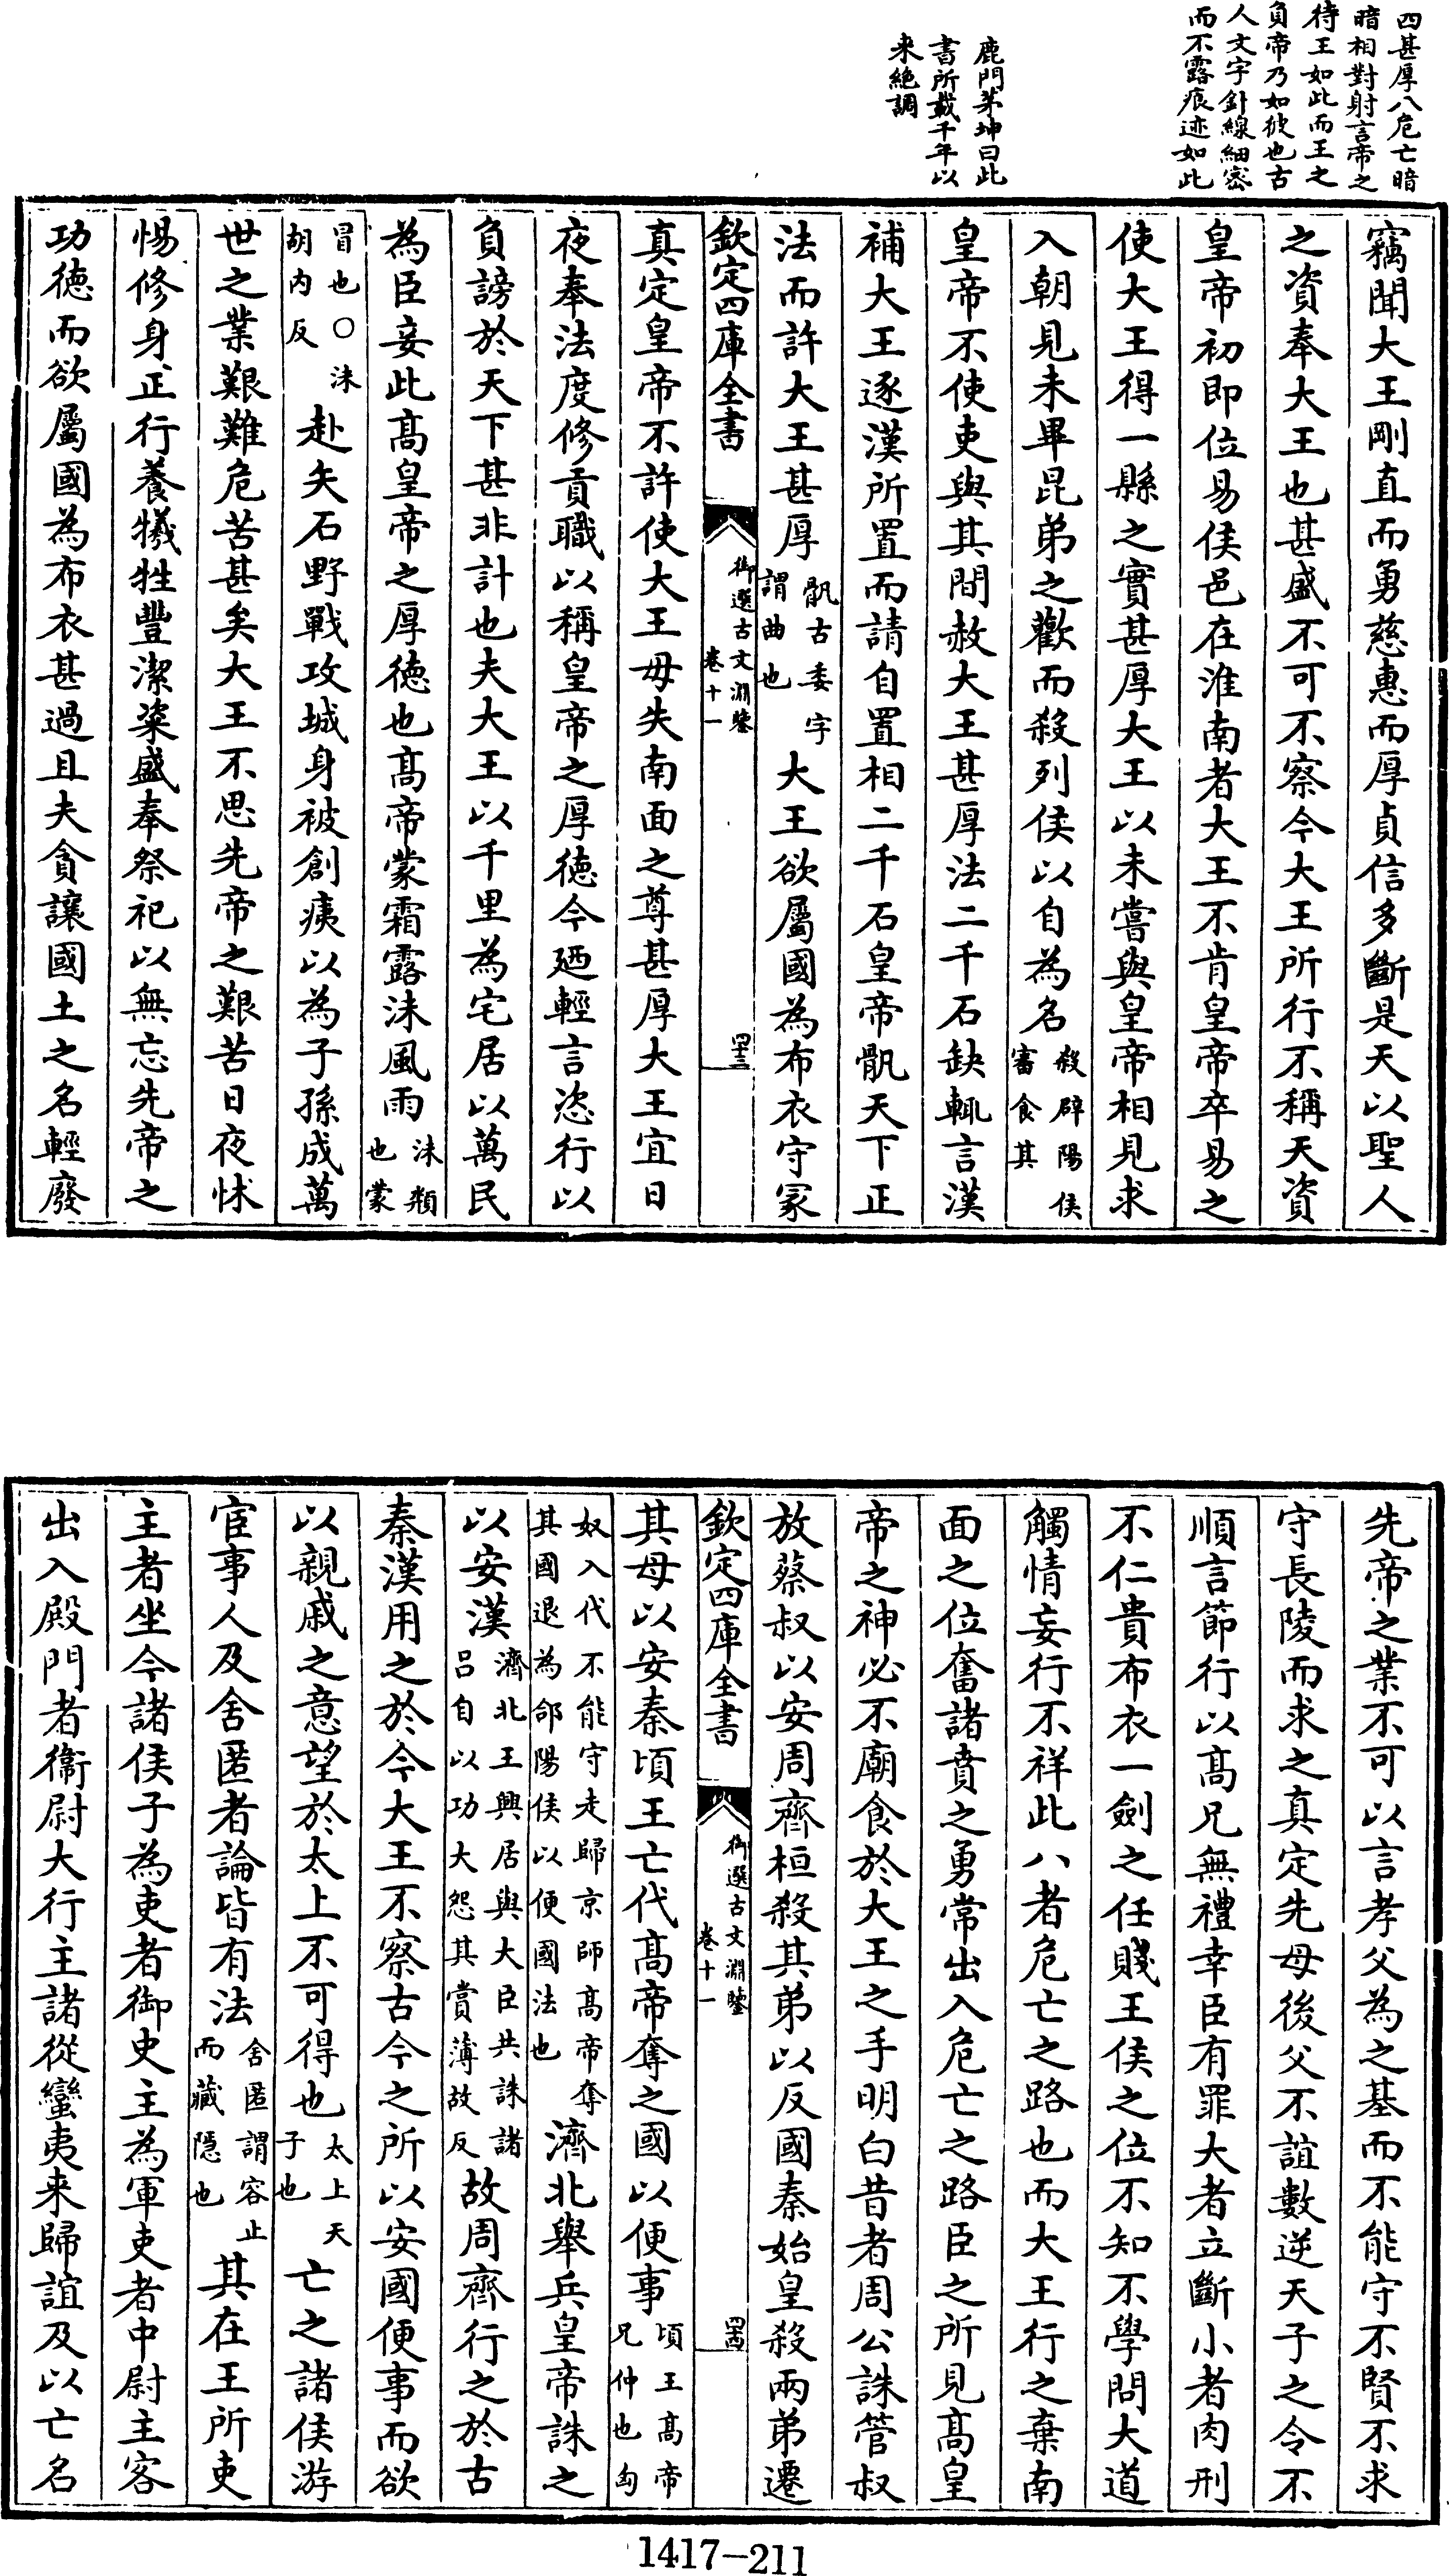 四甚厚八危亡暗
暗相對射言帝之
待王如此而王之
負帝乃如彼也古
人文字針線細密
而不露痕迹如此
鹿門茅坤曰此
書所載千年以
来絶調
竊聞大王剛直而勇慈惠而厚貞信多斷是天以聖人
之資奉大王也甚盛不可不察今大王所行不稱天資
皇帝初即位易侯邑在淮南者大王不肯皇帝卒易之
使大王得一縣之實甚厚大王以未嘗與皇帝相見求
入朝見未畢昆弟之歡而殺列侯以自為名殺辟陽侯審食其
皇帝不使吏與其間赦大王甚厚法二千石缺輒言漢
補大王逐漢所置而請自置相二千石皇帝骫天下正
法而許大王甚厚骫古委字謂曲也大王欲屬國為布衣守冢
欽定四庫全書
御選古文淵鑒
卷十一
四十三
真定皇帝不許使大王毋失南面之尊甚厚大王宜日
夜奉法度修貢職以稱皇帝之厚徳今廼輕言恣行以
負謗於天下甚非計也夫大王以千里為宅居以萬民
為臣妾此髙皇帝之厚徳也髙帝蒙霜露沬風雨沬頮也蒙
冒也〇沬胡内反赴矢石野戰攻城身被創痍以為子孫成萬
世之業艱難危苦甚矣大王不思先帝之艱苦日夜怵
惕修身正行養犧牲豐潔粢盛奉祭祀以無忘先帝之
功徳而欲屬國為布衣甚過且夫貪讓國土之名輕廢
先帝之業不可以言孝父為之基而不能守不賢不求
守長陵而求之真定先母後父不誼數逆天子之令不
順言節行以髙兄無禮幸臣有罪大者立斷小者肉刑
不仁貴布衣一劍之任賤王侯之位不知不學問大道
觸情妄行不祥此八者危亡之路也而大王行之棄南
面之位奮諸賁之勇常出入危亡之路臣之所見髙皇
帝之神必不廟食於大王之手明白昔者周公誅管叔
放蔡叔以安周齊桓殺其弟以反國秦始皇殺兩弟遷
欽定四庫全書
御選古文淵鑒
卷十一
四十四
其母以安秦頃王亡代髙帝奪之國以便事頃王髙帝兄仲也匈
奴入代不能守走歸京師髙帝奪其國退為郃陽侯以便國法也濟北舉兵皇帝誅之
以安漢濟北王興居與大臣共誅諸吕自以功大怨其賞薄故反故周齊行之於古
秦漢用之於今大王不察古今之所以安國便事而欲
以親戚之意望於太上不可得也太上天子也亡之諸侯游
宦事人及舍匿者論皆有法舍匿謂容止而藏隠也其在王所吏
主者坐今諸侯子為吏者御史主為軍吏者中尉主客
出入殿門者衞尉大行主諸從蠻夷来歸誼及以亡名
1417-211